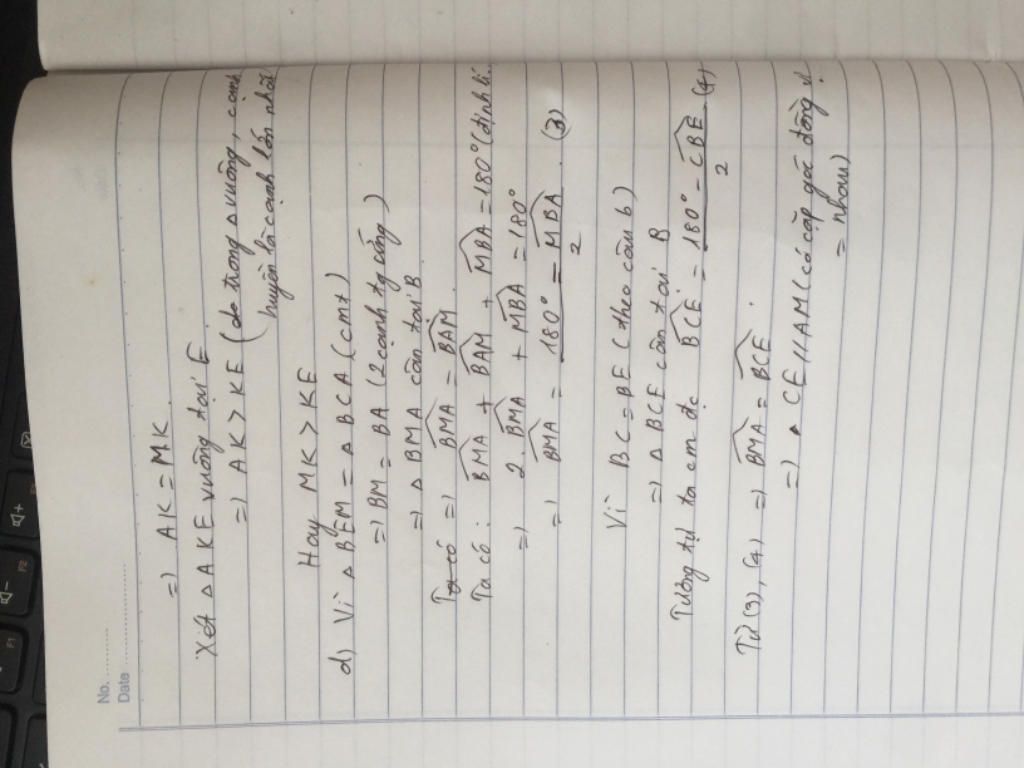 No. ............
Date ........................
=) AK = MK
Xét △ AKE vuông tại E
=) AK > KE (do trong △ vuông, cạnh
huyền là cạnh lớn nhất
Hay MK > KE
d) Vì △ BEM = △ BCA (cmt)
=) BM = BA (2 cạnh tg ứng)
=) △ BMA cân tại B
Ta có =) BMA = BAM
Ta có : BMA + BAM + MBA = 180° (định lí
=) 2. BMA + MBA = 180°
=) BMA = 180° - MBA / 2 . (3)
Vì BC = BE (theo câu b)
=) △ BCE cân tại B
Tương tự ta cm đc BCE = 180° - CBE / 2 (4)
Từ (3), (4) =) BMA = BCE
=) CE // AM (có cặp góc đồng vị
= nhau)
F1
F2